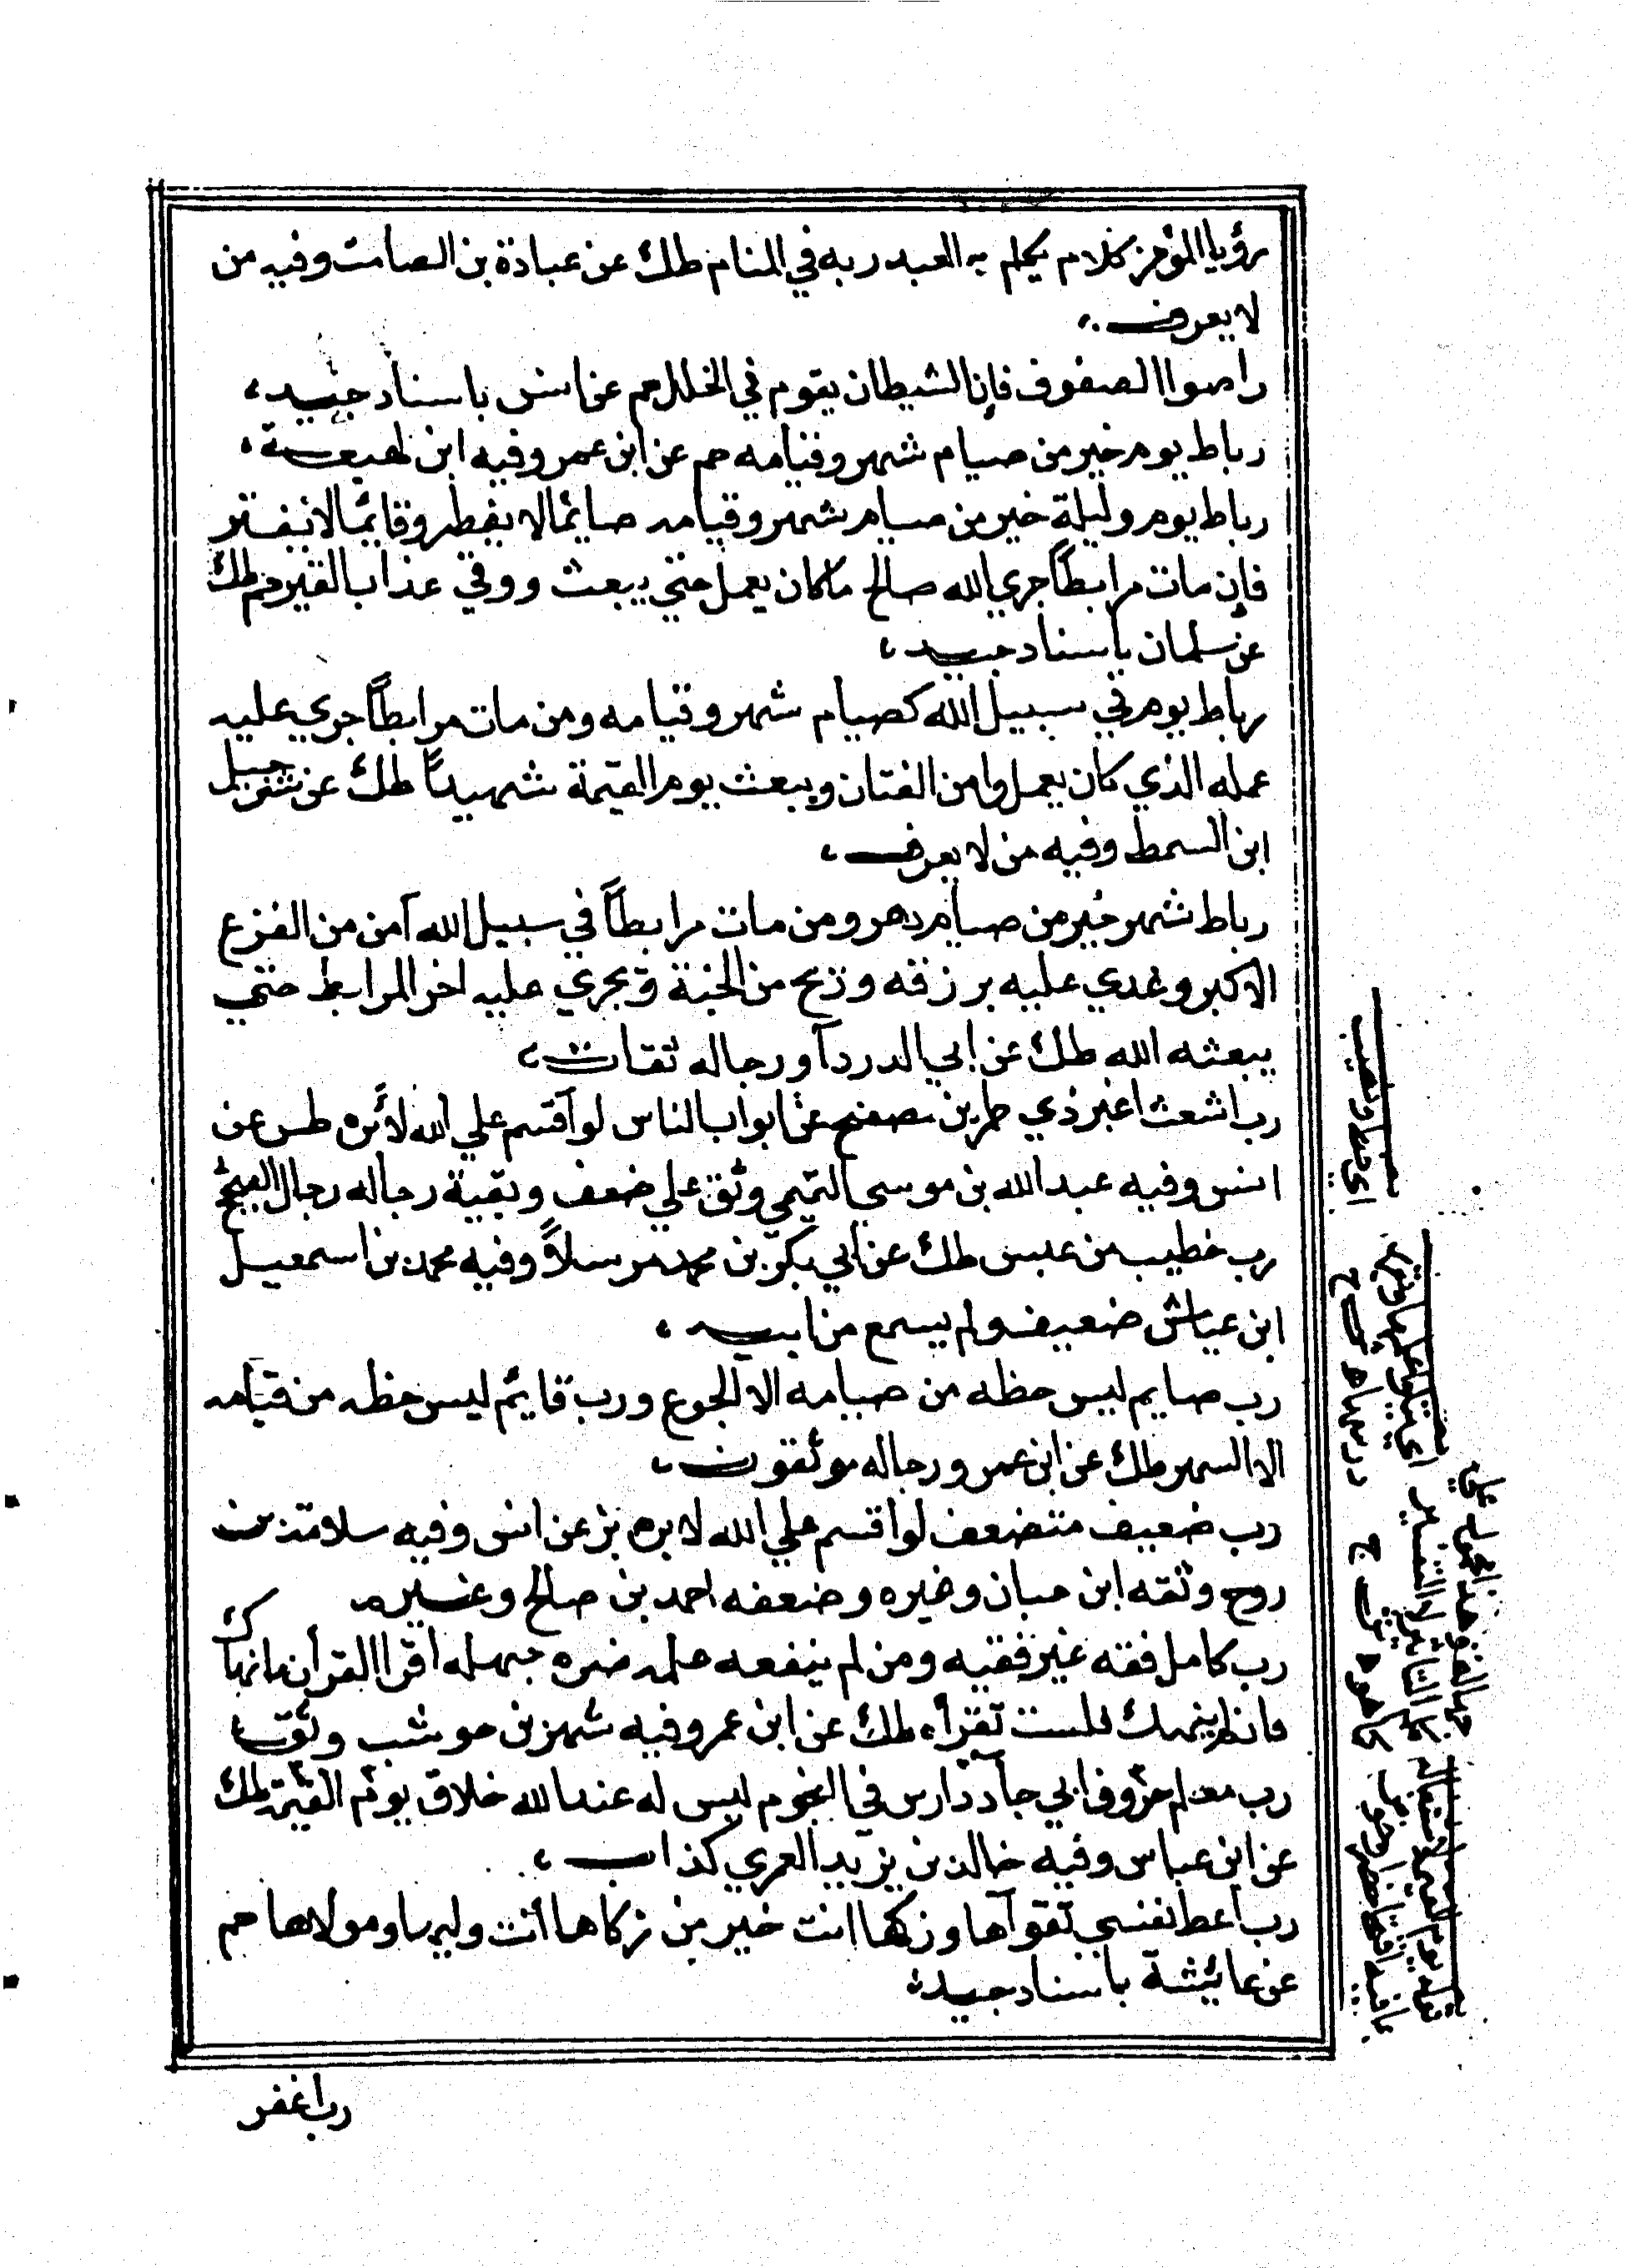 رؤيا المؤمن كلام يكلم به العبد ربه في المنام طك عن عبادة بن الصامت وفيه من
لا يعرف
راصوا الصفوف فإن الشيطان يقوم في الخلل حم عن انس باسناد جيد
رباط يوم خير من صيام شهر وقيامه حم عن ابن عمر وفيه ابن لهيعة
رباط يوم وليلة خير من صيام شهر وقيامه صايما لا يفطر وقايما لا يفتر
فإن مات مرابطاً جري الله صالح ما كان يعمل حتي يبعث ووقي عذاب القبر طك
عن سلمان باسناد جيد
رباط يوم في سبيل الله كصيام شهر وقيامه ومن مات مرابطاً جري عليه
عمله الذي كان يعمل وامن الفتان ويبعث يوم القيمة شهيداً طك عن شرحبيل
ابن السمط وفيه من لا يعرف
رباط شهر خير من صيام دهر ومن مات مرابطاً في سبيل الله آمن من الفزع
الاكبر وغدي عليه برزقه وريح من الجنة ويجري عليه اجر المرابط حتي
يبعثه الله طك عن ابي الدردآ ورجاله ثقات
رب اشعث اغبر ذي طمرين مصفح عن ابواب الناس لو آقسم علي الله لأبره طس عن
انس وفيه عبد الله بن موسي التيمي وثق علي ضعف وبقية رجاله رجال الصحيح
رب خطيب من عبس طك عن ابي بكر بن محمد مرسلاً وفيه محمد بن اسمعيل
ابن عياش ضعيف ولم يسمع من ابيه
رب صايم ليس حظه من صيامه الا الجوع ورب قايم ليس حظه من قيامه
الا السهر طك عن ابن عمر ورجاله موثقون
رب ضعيف متضعف لو اقسم علي الله لابره بز عن انس وفيه سلامة بن
روح وثقه ابن حبان وغيره وضعفه احمد بن صالح وغيره
رب كامل فقه غير فقيه ومن لم ينفعه علمه ضره جهله اقرا القرأن ما نهاك
فان لم ينهك فلست تقرأه طك عن ابن عمر وفيه شهر بن حوشب وثق
رب معلم حروف ابي جآد دارس في النجوم ليس له عند الله خلاق يوم القيمة طك
عن ابن عباس وفيه خالد بن يزيد العمري كذاب
رب أعط نفسي تقوآها وزكها انت خير من زكاها أنت وليها ومولاها حم
عن عائشة باسناد جيد
رب اغفر